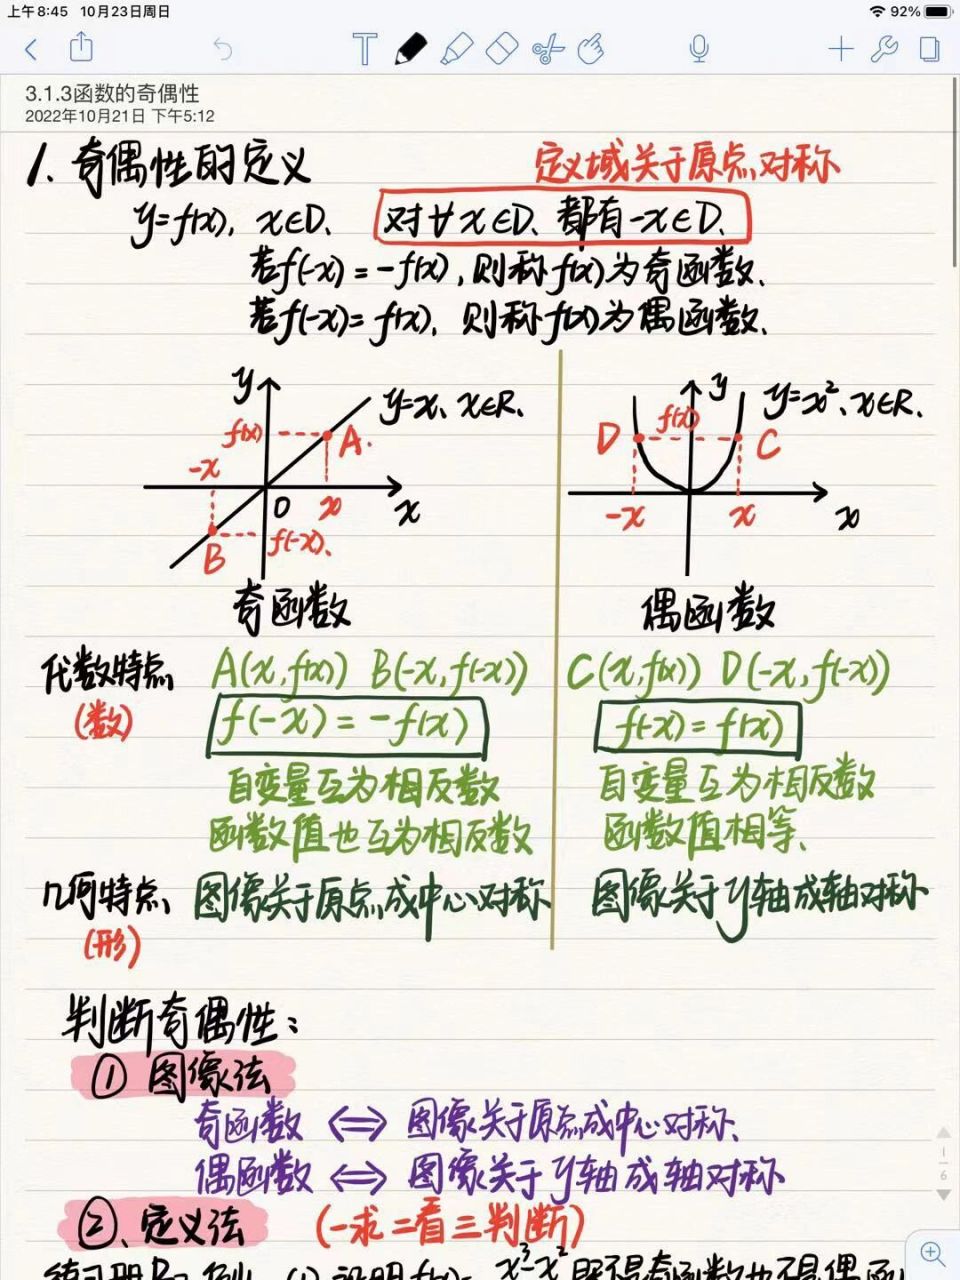 上午8:45 10月23日周日
92%
T
3.1.3函数的奇偶性
2022年10月21日 下午5:12
1. 奇偶性的定义
定义域关于原点对称
y=f(x), x∈D, 对∀x∈D, 都有-x∈D.
若f(-x)=-f(x), 则称f(x)为奇函数.
若f(-x)=f(x), 则称f(x)为偶函数.
y y=x, x∈R.
f(x) A.
-x
O x x
B f(-x).
奇函数
y y=x², x∈R.
D f(x) C
-x x x
偶函数
代数特点 A(x,f(x)) B(-x,f(-x)) C(x,f(x)) D(-x,f(-x))
(数) f(-x)=-f(x) f(-x)=f(x)
自变量互为相反数 自变量互为相反数
函数值也互为相反数 函数值相等.
几何特点 图像关于原点成中心对称 图像关于y轴成轴对称
(形)
判断奇偶性:
① 图像法
奇函数 ⟺ 图像关于原点成中心对称.
偶函数 ⟺ 图像关于y轴成轴对称
②. 定义法 (一求二看三判断)
1
6